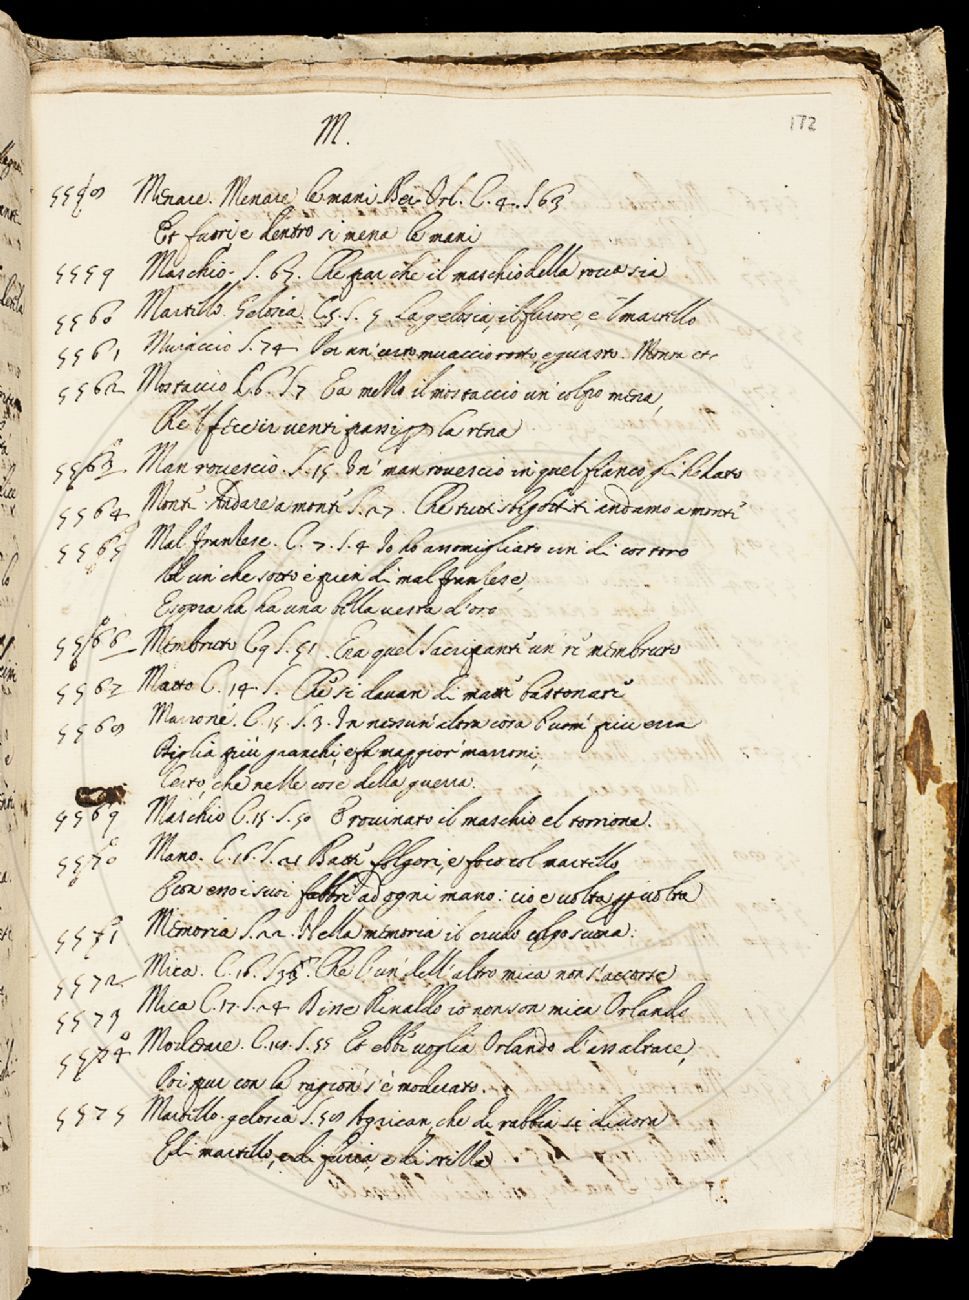 172
M.
5558 Menare. Menare le mani Ber. Orl. C. 4. S 63
Et fuori e dentro si mena le mani
5559 Maschio. S. 65. Che par che il maschio della rocca sia
5560 Martillo. Gelosia. C.5. S. 5 La gelosia, il furore, e 'l martillo
5561 Muraccio S. 74 Per un' certo muraccio rotto, e guasto.
5562 Mostaccio C. 6. S. 7 Ea mezzo il mostaccio un' colpo mena,
Che 'l fece ir venti passi p la rena
5563 Man rovescio. S. 15. Un' man rovescio in quel fianco gli ha dato
5564 Monte. Andare a monte S. 27. Che tutti andamo a monte
5565 Mal franzese. C. 7. S. 4 Io ho assomigliato un' di costoro
Ad un' che sotto è pien di mal franzese,
E sopra ha una bella vesta d'oro
5566 Membruto C 9 S. 51. Era quel Sacripante un' re membruto
5567 Matto C. 14. S. Che si davan di matte bastonate
5568 Marrone. C. 15. S. 3. In nessun' altra cosa l'uom' piu erra
Piglia piu granchi, e fa maggior' marroni,
Certo, che nelle cose della guerra.
5569 Maschio C. 15. S. 50 E rovinato il maschio el torrione.
5570 Mano. C. 16. S. 21 Batte folgori, e foco col martillo
E con esso i suoi fabbri ad ogni mano: cio e volta p volta
5571 Memoria S. 22. Nella memoria il crudo colpo
5572 Mica. C. 16. S. Che l'un' dell' altro mica non s'accorse
5573 Mica C. 17. S. 24 Disse Rinaldo io non son mica Orlando
5574 Moderare. C. 18. S. 55 Et ebbe voglia Orlando d'assaltare,
Poi pur con la ragion' s'è moderato.
5575 Martillo. gelosia S. 58 Agrican, che di rabbia si divora
E di martillo, e di furia, e di stilla